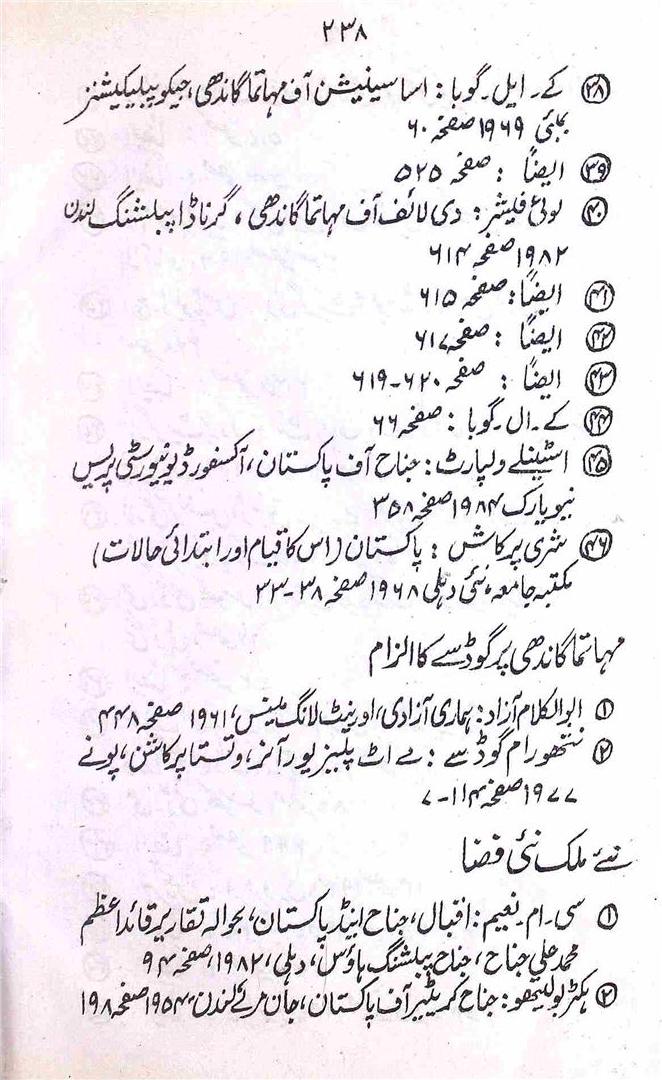 ۲۳۸
㊳ کے۔ ایل۔ گوبا : اساسینیشن آف مہاتما گاندھی، جیکو پبلیکیشنز
بمبئی ۱۹۶۹ صفحہ ۶۰
㊴ ایضاً : صفحہ ۵۲۵
㊵ لوئ فیشر : دی لائف آف مہاتما گاندھی ، گرناڈا پبلشنگ لندن
۱۹۸۲ صفحہ ۶۱۴
㊶ ایضاً : صفحہ ۶۱۵
㊷ ایضاً : صفحہ ۶۱۷
㊸ ایضاً : صفحہ ۶۲۰-۶۱۹
㊹ کے۔ ال۔ گوبا : صفحہ ۶۶
㊺ اسٹینلے ولپارٹ : جناح آف پاکستان، آکسفورڈ یونیورسٹی پریس
نیویارک ۱۹۸۴ صفحہ ۳۵۸
㊻ شری پرکاش : پاکستان (اس کا قیام اور ابتدائی حالات)
مکتبہ جامعہ، نئی دہلی ۱۹۶۸ صفحہ ۳۸-۳۳
مہاتما گاندھی پر گوڈسے کا الزام
① ابوالکلام آزاد : ہماری آزادی، اورینٹ لانگ مینس، ۱۹۶۱ صفحہ ۴۴۸
② نتھورام گوڈسے : مے اٹ پلیز یور آنر، وتستا پرکاشن، پونے
۱۹۷۷ صفحہ ۱۱۴-۷
نئے ملک نئی فضا
① سی۔ ام۔ نعیم : اقبال، جناح اینڈ پاکستان، بحوالہ تقاریر قائداعظم
محمد علی جناح، جناح پبلشنگ ہاؤس، دہلی، ۱۹۸۲، صفحہ ۹۴
② ہکٹر بولیتھو : جناح کریٹیر آف پاکستان، جان مرے لندن، ۱۹۵۴ صفحہ ۱۹۸